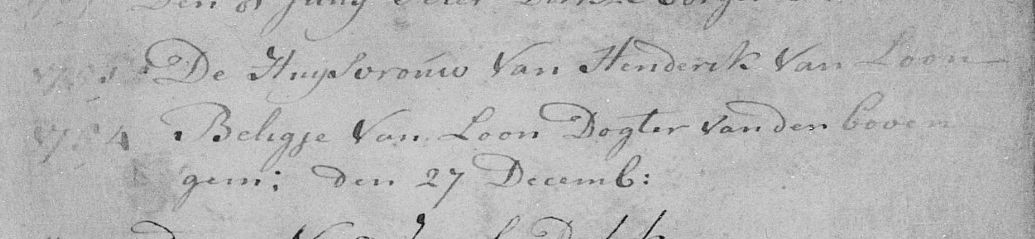 Den 8 Juny Peter
De Huysvrouw Van Henderik Van Loon
1754 Beligje Van Loon Dogter van den boven
gem; den 27 Decemb: